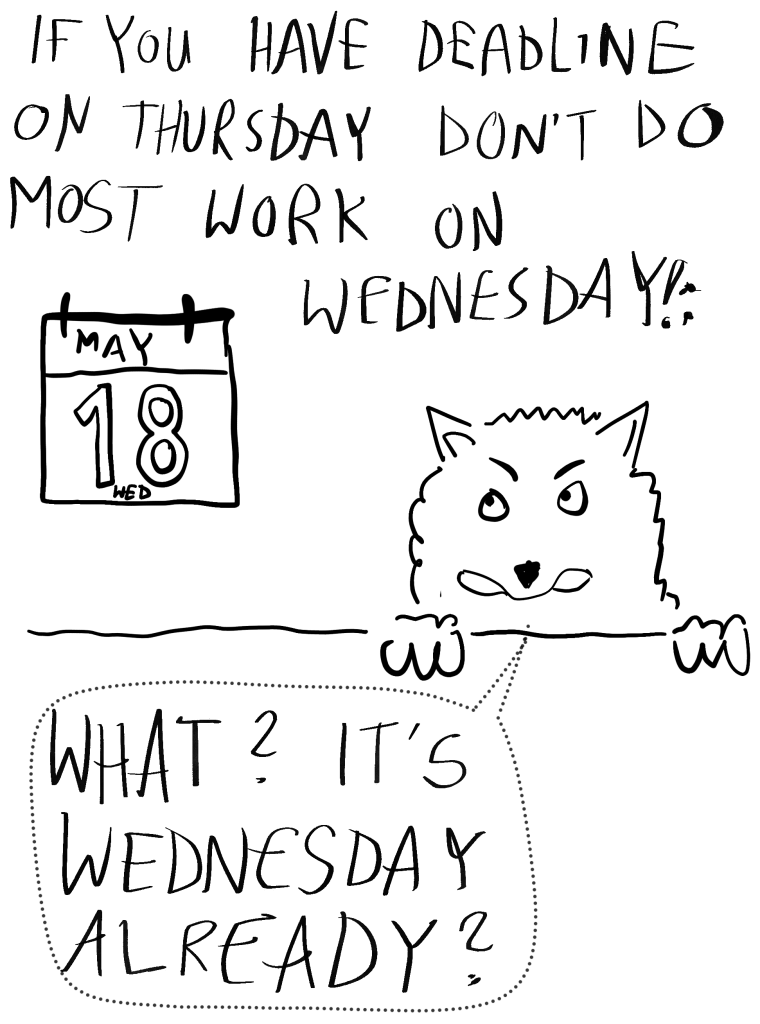 IF YOU HAVE DEADLINE
ON THURSDAY DON'T DO
MOST WORK ON
WEDNESDAY!:
MAY
18
WED
WHAT? IT'S
WEDNESDAY
ALREADY?